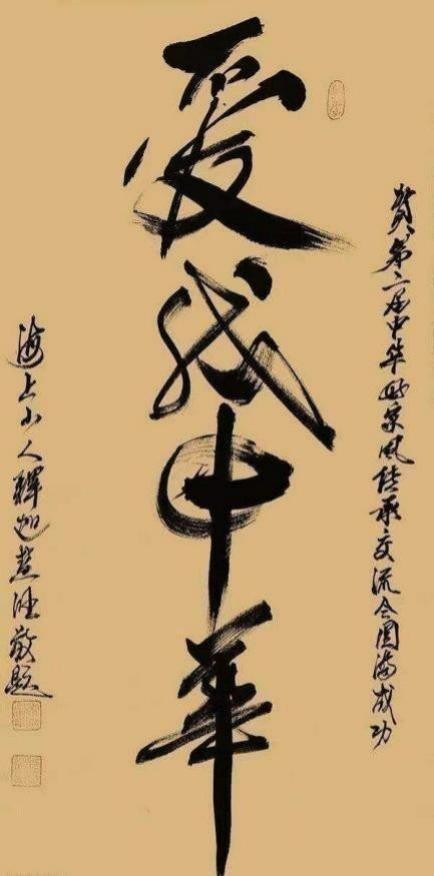 贺第二届中华家风传承交流会圆满成功
爱我中華
海上山人釋迦慧敬题